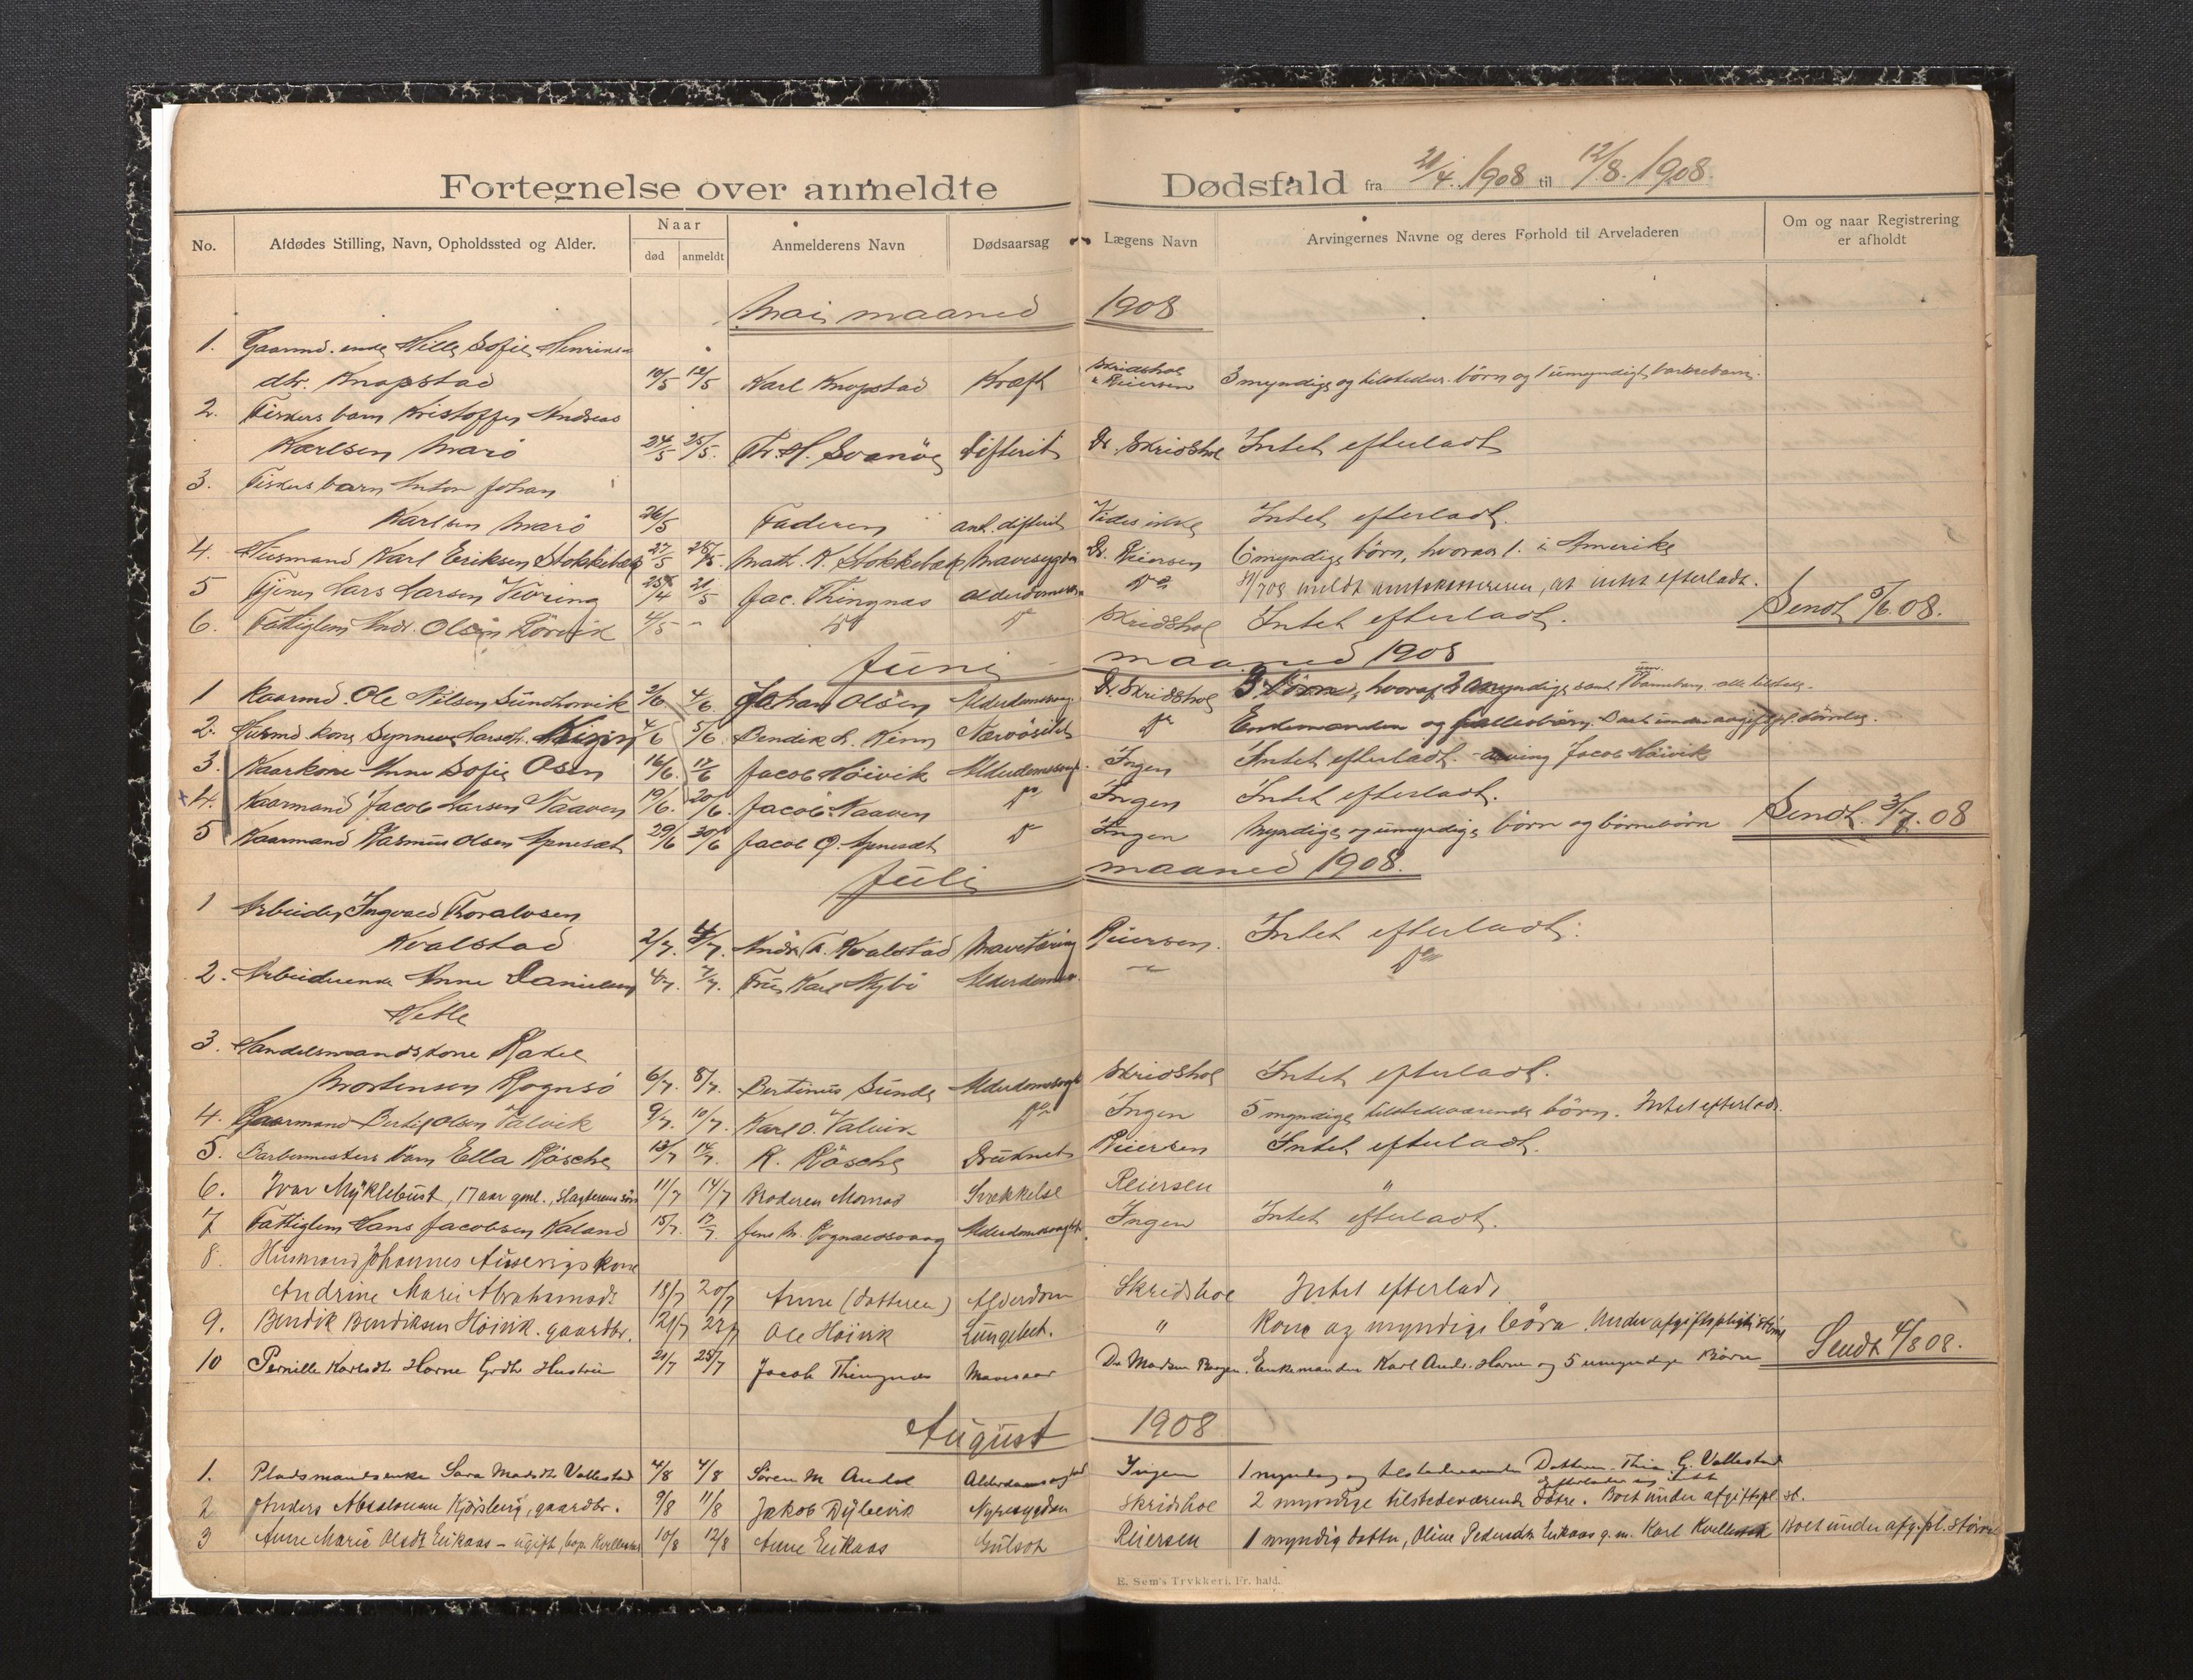 Fortegnelse over anmeldte Dødsfald fra 21/4. 1908 til 12/8. 1908.
No. Afdødes Stilling, Navn, Opholdssted og Alder. Naar død anmeldt Anmelderens Navn Dødsaarsag Lægens Navn Arvingernes Navne og deres Forhold til Arveladeren Om og naar Registrering er afholdt
Mai maaned 1908
1. Gaarmd. enke Sofie Henriks-
dtr. Knapstad 10/5 12/5 Karl Knapstad Kræft Skridshol & Reiersen 3 myndige og tilstedev. børn og 1 umyndigt barnebarn.
2. Fiskers barn Kristoffer Andreas
Karlsen Marö 24/5 25/5. Th. H. Svanöe Difterit Dr. Skridshol Intet efterladt
3. Fiskers barn Anton Johan
Karlsen Marö 26/5 Faderen ant. difterit Vides ikke Intet efterladt.
4. Husmand Karl Eriksen Stokkebæk 27/5 Math. K. Stokkebæk Mavesygdom Dr. Reiersen 6 myndige børn, hvoraf 1. i Amerika
5 Lars Larsen 25/4 21/5 Jac. Thingnæs Alderdoms Do meldt amtskassereren, at intet efterladt.
6. Fattiglem Andr. Olsen Rörvik 4/5 - Do Do Skridshol Intet efterladt. Sendt 5/6. 08.
Juni maaned 1908
1 Kaarmd. Ole Nilsen Sundhorvik 2/6 4/6. Johan Olsen Alderdomssvag Dr. Skridshol 3 børn, hvoraf myndige samt barnebarn alle tilstede.
2. Husmd. kone Synneve Larsdtr. 4/6 5/6 Bendik L. Nervøsitet Do Enkemanden og fællesbørn. Boet under afgiftspl. størrelse.
3. Kaarkone Anne Sofie Osen 16/6. 17/6 Jacob Höivik Alderdomssvagh. Ingen Intet efterladt. - arving Jacob Höivik
4. Kaarmand Jacob Larsen Naaven 19/6. 20/6. Jacob Naaven Do Ingen Intet efterladt.
5 Kaarmand Rasmus Olsen 29/6 30/6 Jacob Do Ingen Myndige og umyndige børn og børnebörn Sendt. 3/7. 08
Juli maaned 1908.
1 Arbeider Ingvald Thoralvsen
Kvalstad 2/7. 4/7. Andr. T. Kvalstad Mavetæring Reiersen. Intet efterladt.
2. Arbeiderenke Anne Danielsen 4/7. 7/7. Fru Karl Nybö Alderdoms. - Do
Hetle
3. Handelsmandskone Rakel
Mortensen Rognsö 6/7. 8/7. Bertinus Sunde Alderdomssvagh Skridshol Intet efterladt.
4. Kaarmand Bertil Olsen Valvik 9/7. 10/7. Karl O. Valvik Do Ingen 5 myndige tilstedeværende børn. Intet efterladt.
5. Barbermesters barn Ella Räsche 13/7 14/7. R. Räsche Druknet Reiersen Intet efterladt.
6. Ivar Myklebust, 17 aar gml., slagterens sön 11/7 14/7 Broderen Svækkelse Reiersen "
7 Fattiglem Hans Jacobsen Kaland 15/7. 17/7. Jens M. Rognaldsvaag Alderdomssvaghed Ingen Intet efterladt.
8. Husmand Johannes kone
Andrine Marie Abrahamsdt 18/7 20/7 Anne (datteren) Alderdom Skridshol Intet efterladt
9. Bendik Bendiksen Höivik. gaardbr. 21/7 23/7 Ole Höivik Lungebet. " Kone og myndige börn. Under afgiftspligtig störr. Sendt 4/8 08.
10 Pernille Karlsdtr Horne Grdbr Hustru 21/7 25/7 Jacob Thingnæs Mavesaar Dr Madsen Bergen. Enkemanden Karl Andr. Horne og 5 umyndige Børn
August 1908
1. Pladsmandsenke Sara Madsdtr Vallestad 4/8 4/8 Sören M Andal Alderdomssvaghed Ingen 1 myndig og tilstedeværende Datteren Thea G. Vallestad
Efterlader sig Intet
2 Anders Absalonsen Kjörsleng, gaardbr. 9/8 11/8 Jakob Nyresygdom Skridshol 2 myndige tilstedeværende døtre. Boet under afgiftspl. st.
3 Anne Marie Olsdt Eikaas - ugift, 10/8 12/8 Anne Eikaas Gulsot Reiersen 1 myndig datter, Oline Pedersdtr Eikaas g. m. Karl Boet under afg.pl. störrelse
E. Sem's Trykkeri, Fr. hald.